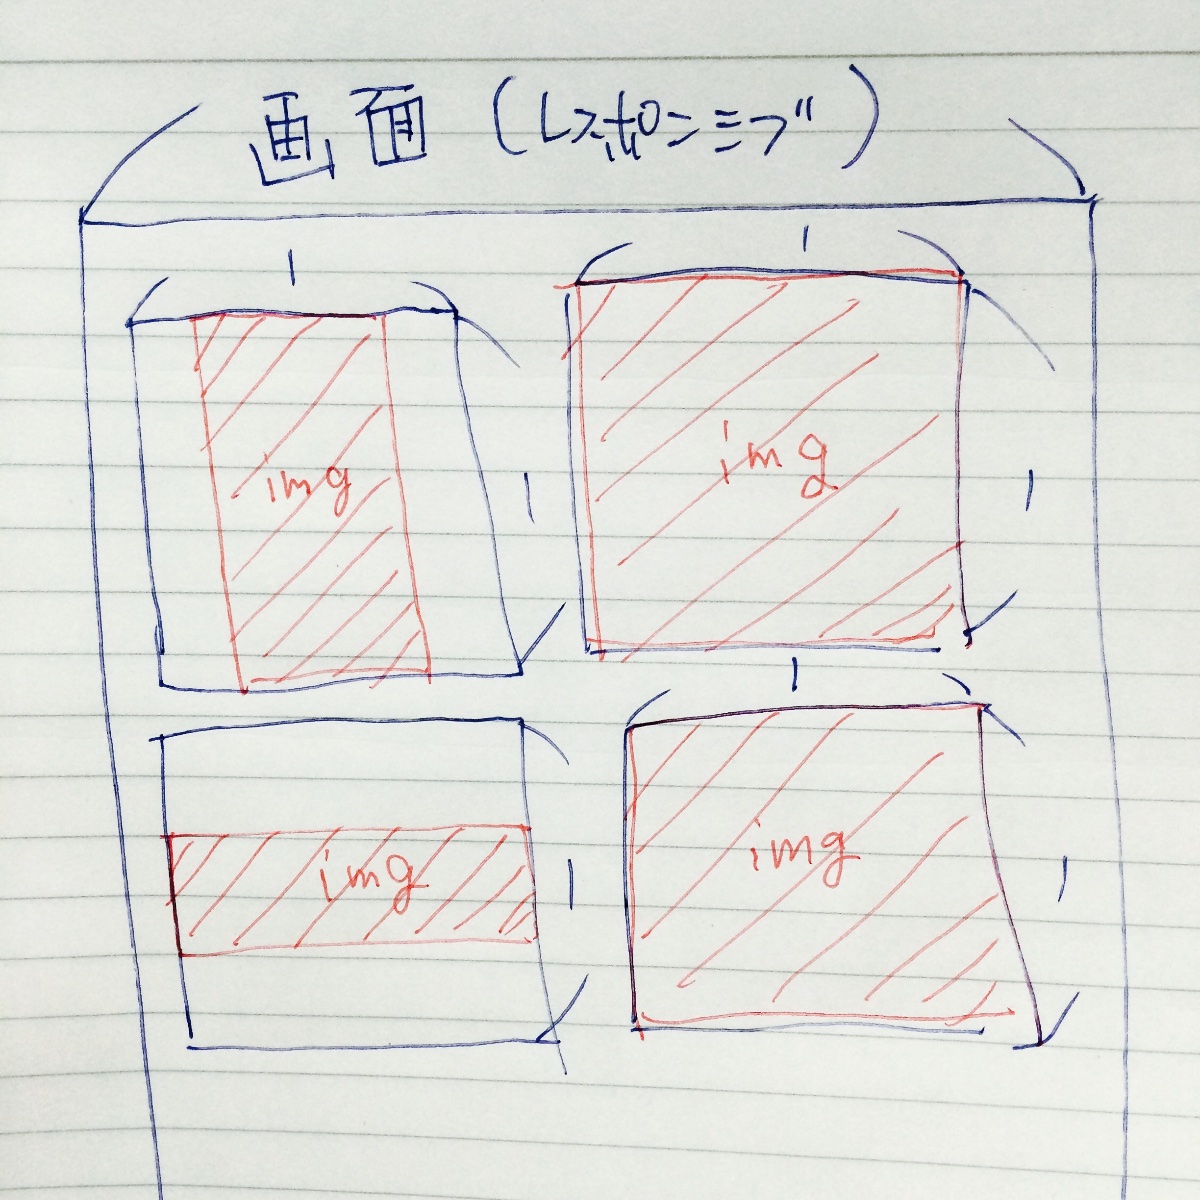 画面(レスポンシブ)
1
1
img
img
1
1
1
img
img
1
1